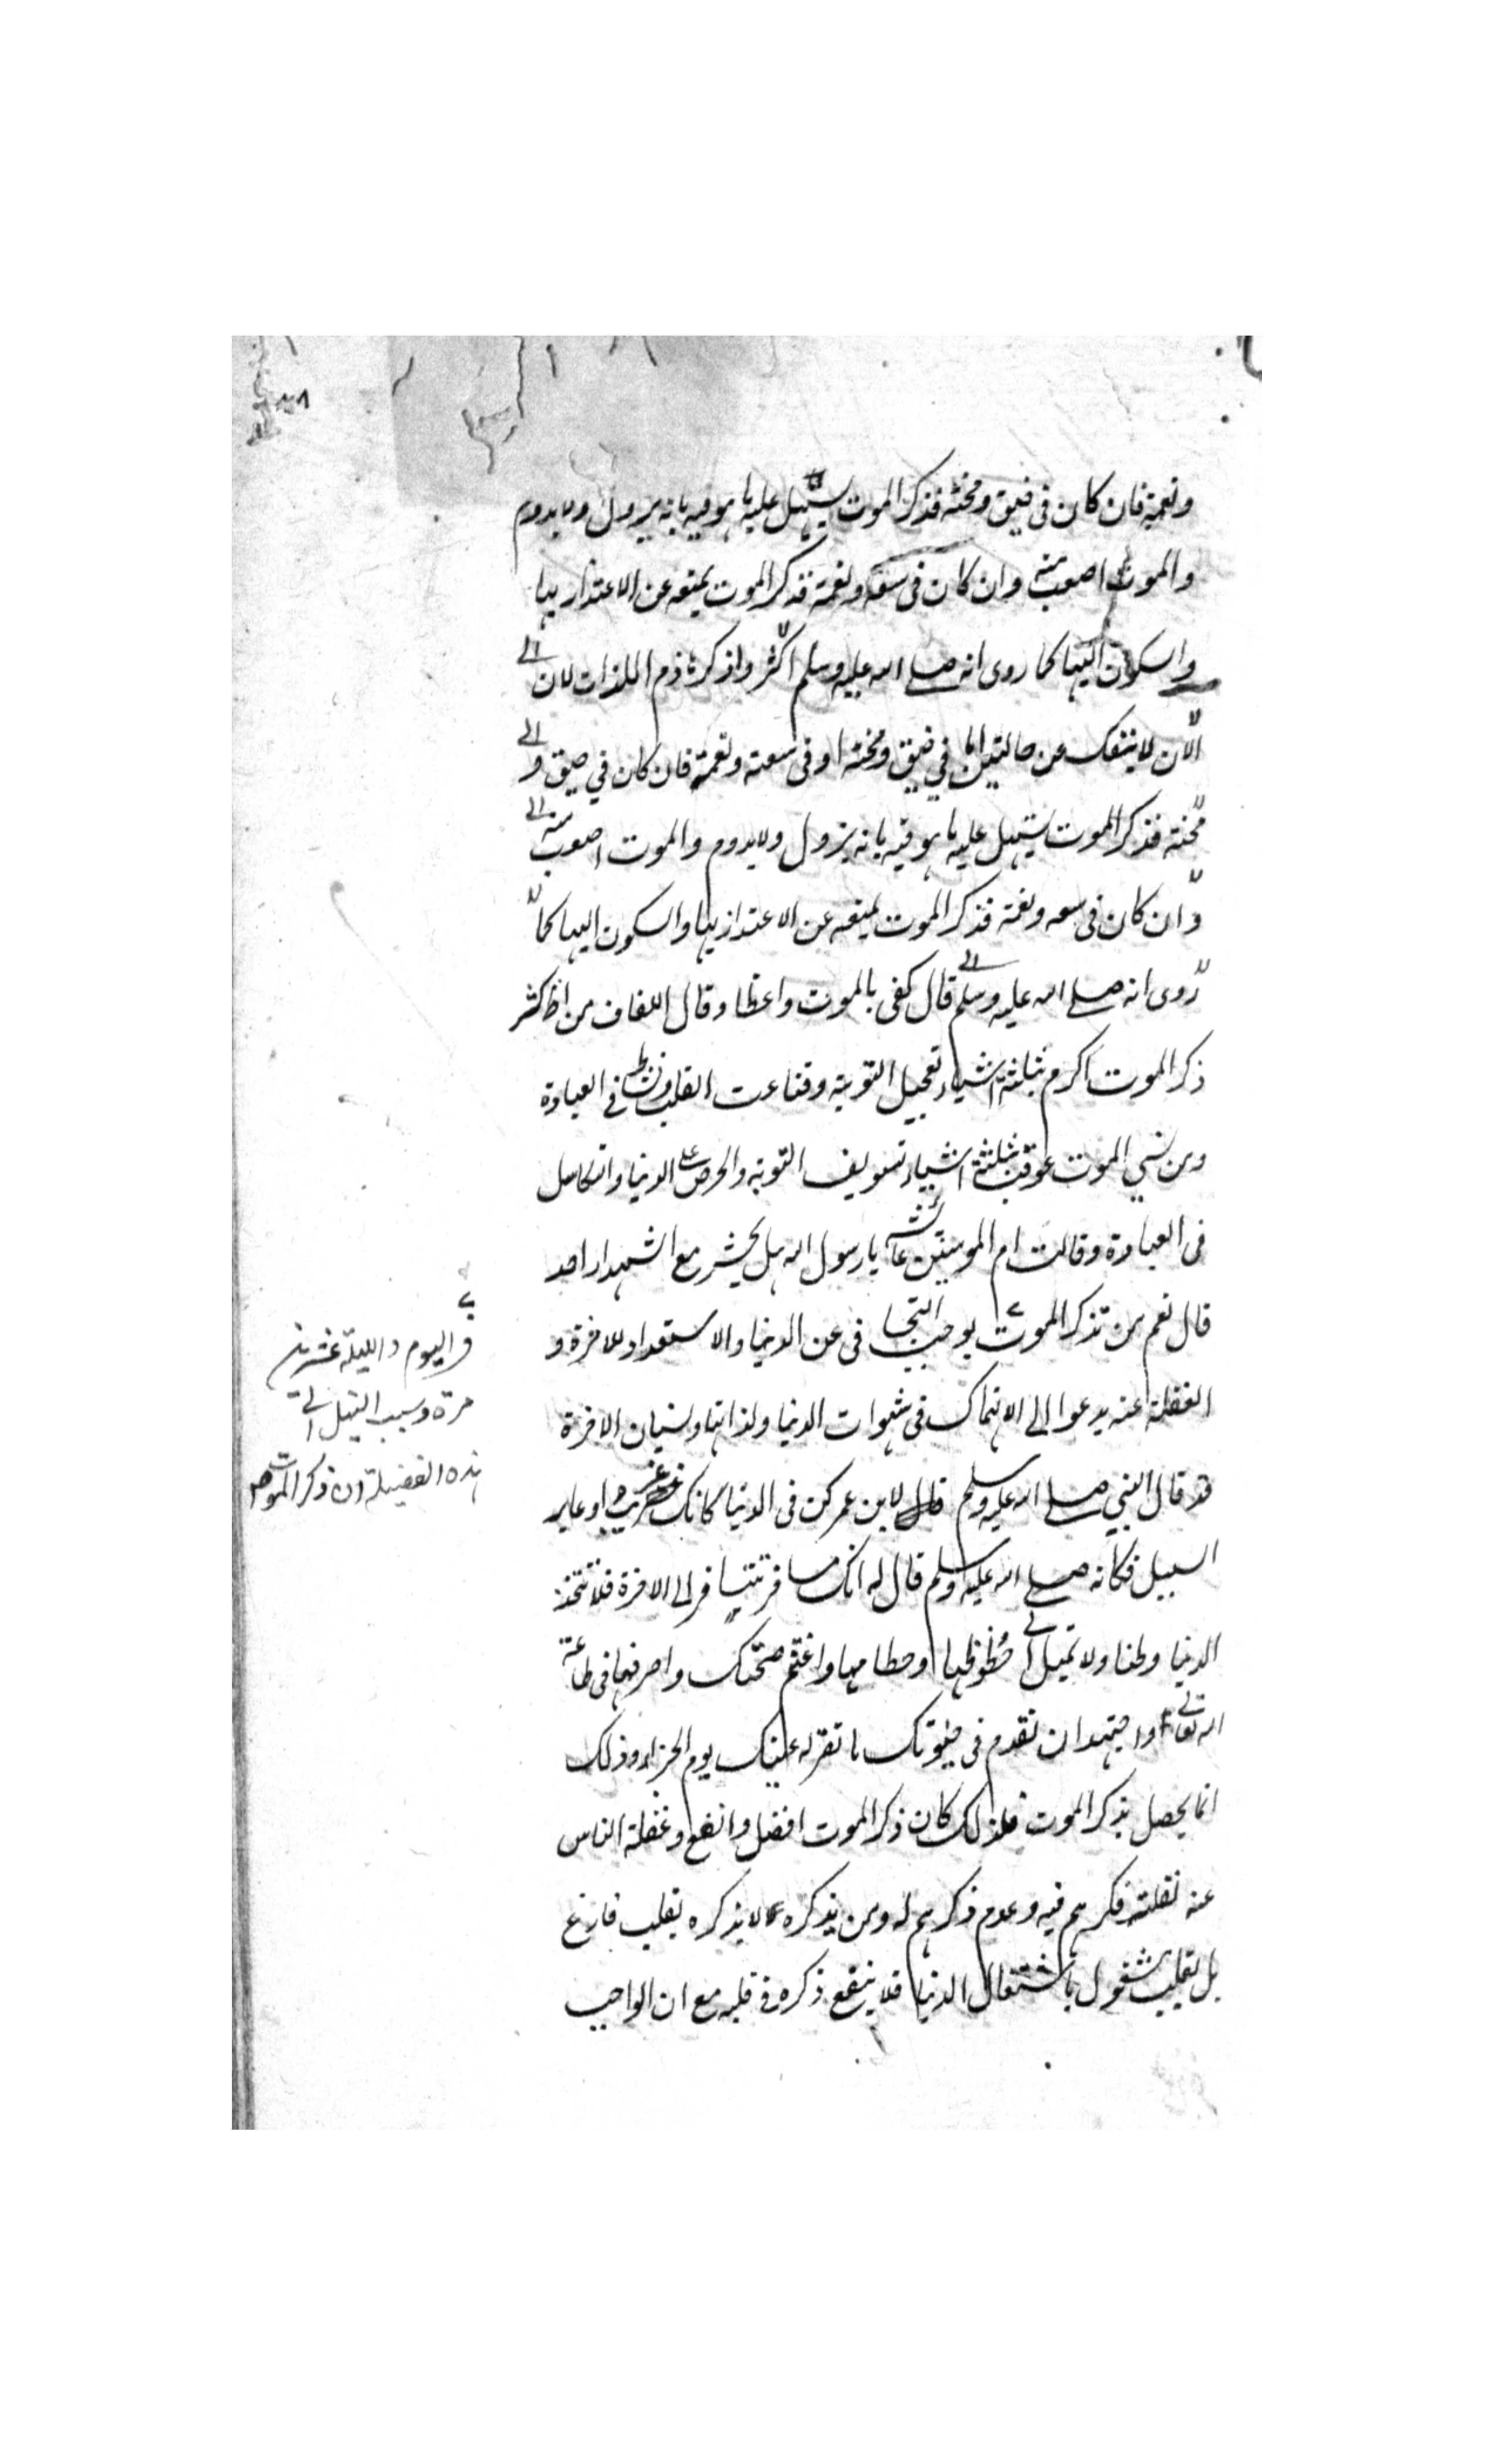 ونعمة فان كان فى ضيق ومحنة فذكر الموت يسهل عليه ما هو فيه بانه يزول ولا يدوم
والموت اصعب منه وان كان فى سعة ونعمة فذكر الموت يمنعه عن الاعتذار بها
والسكون اليها كما روى انه صلى الله عليه وسلم اكثروا ذكر هاذم اللذات لان
الان لا ينفك عن حالتين اما في ضيق ومحنة او فى سعة ونعمة فان كان في ضيق و
محنة فذكر الموت يسهل عليه ما هو فيه بانه يزول ولا يدوم والموت اصعب منه
وان كان فى سعه ونعمة فذكر الموت يمنعه عن الاعتذار بها والسكون اليها كما
روى انه صلى الله عليه وسلم قال كفى بالموت واعظا وقال اللفاف من اكثر
ذكر الموت اكرم بثلثة اشياء تعجيل التوبة وقناعت القلب ونشاط فى العبادة
ومن نسي الموت عوقب بثلثة اشياء تسويف التوبة والحرص على الدنيا والتكاسل
فى العبادة وقالت ام المومنين عائشه يا رسول الله هل يحشر مع الشهداء احد
قال نعم من تذكر الموت يوجب التجافى عن الدنيا والاستعداد للاخرة و
الغفلة عنه يدعوا الى الانهماك فى شهوات الدنيا ولذاتها ونسيان الاخرة
قد قال النبي صلى الله عليه وسلم قال لابن عمر كن فى الدنيا كانك غريب او عابر
السبيل فكانه صلى الله عليه وسلم قال له انك مسافر ستسافر الى الاخرة فلا تتخذ
الدنيا وطنا ولا تميل الى حظوظها وحطامها واغتنم صحتك واصرفها فى طاعة
الله تعالى واجتهد ان تقدم فى حيوتك ما تقر له عينك يوم الجزاء وذلك
انما يحصل بذكر الموت فلذلك كان ذكر الموت افضل وانفع وغفلة الناس
عنه لقلة فكرهم فيه وعدم ذكرهم له ومن يذكره لا يذكره بقلب فارغ
بل بقلب مشغول باشتغال الدنيا فلا ينفع ذكره فى قلبه مع ان الواجب
فى اليوم والليلة عشرين
مرة وسبب النيل الى
هذه الفضيلة ان ذكر الموت